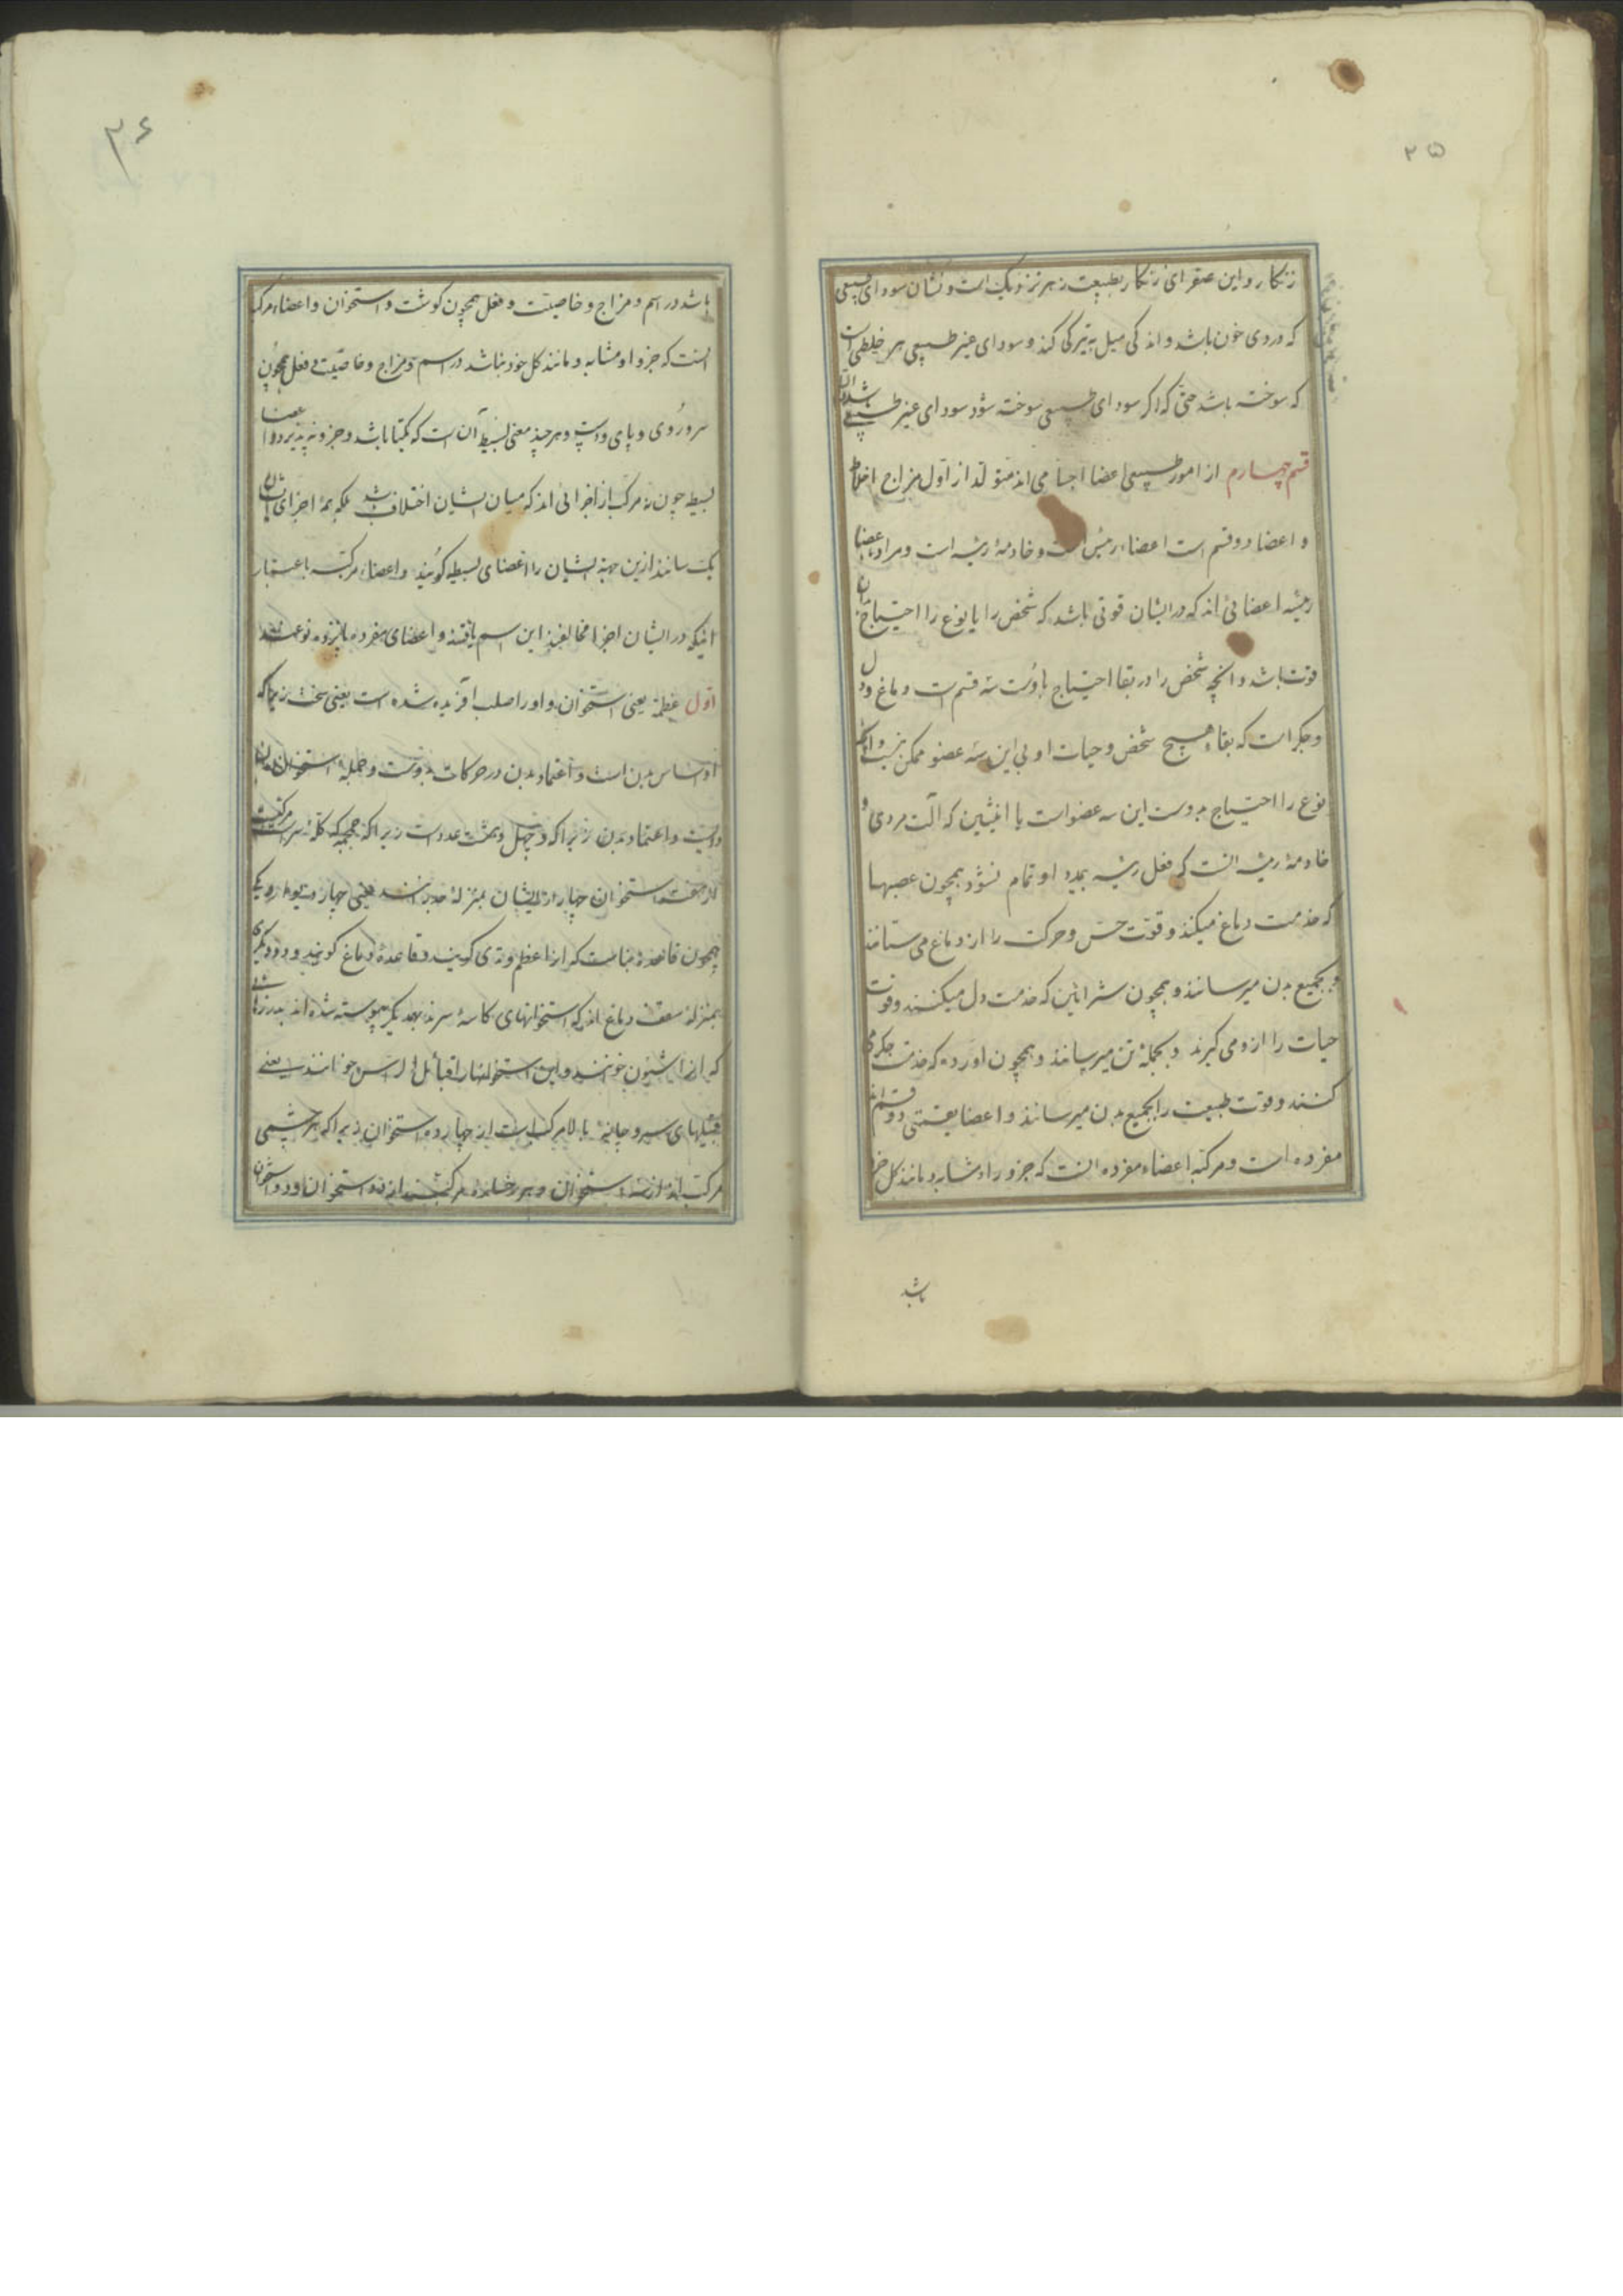 ۲۵
زنکار و این صفرای زنکار بطبیعت زهر نزدیک است و نشان سودای طبیعی
که دردی خون باشد و اندکی میل به تیرکی کند و سودای غیر طبیعی هر خلطی است
که سوخته باشد حتی که اکر سودای طبیعی سوخته شود سودای غیر طبیعی باشد
قسم چهارم از امور طبیعی اعضا اجسامی اند متولد از اول مزاج اخلاط
و اعضا دو قسم است اعضاء رئیس است و خادمهٔ رئیسه است و مراد باعضا
رئیسه اعضائی اند که در ایشان قوتی باشد که شخص را یا نوع را احتیاج بدان
قوت باشد و انچه شخص را در بقا احتیاج باوست سه قسم است دماغ و دل
و جکر است که بقاء هیچ شخص و حیات او بی این سه عضو ممکن نیست و انچه
نوع را احتیاج بدوست این سه عضو است با انثیین که آلت مردی
خادمهٔ رئیسه انست که فعل رئیسه بمدد او تمام نشود همچون عصبها
که خدمت دماغ میکند و قوت حس و حرکت را از دماغ می ستانند
و بجمیع بدن میرسانند و همچون شرائین که خدمت دل میکنند و قوت
حیات را ازو می کیرند و بجملهٔ تن میرسانند و همچون اورده که خدمت جکر می
کنند و قوت طبیعت را بجمیع بدن میرسانند و اعضا بقسمتی دو قسم اند
مفرده است و مرکبه اعضاء مفرده انست که جزو را و مشابه و مانند کل خود
باشد
۳۶
باشد در اسم و مزاج و خاصیت و فعل همچون کوشت و استخوان و اعضاء مرکب
انست که جزو او مشابه و مانند کل خود نباشد در اسم و مزاج و خاصیت و فعل همچون
سر و روی و پای و دست و هر چند معنی بسیط آن است که یکتا باشد و جزو نپذیرد و اعضا
بسیطه چون نه مرکب از اجزائی اند که میان ایشان اختلاف باشد بلکه همهٔ اجزای ایشان
یک سانند ازین جهة ایشان را اعضای بسیطه کویند و اعضاء مرکبه باعتبار
انیکه در ایشان اجزا مخالفند این اسم یافتند و اعضای مفرده پانزده نوعند
اول عظم یعنی استخوان و او را صلب آفریده شده است یعنی سخت زیرا که
او اساس بدن است و اعتماد بدن در حرکات بدوست و جمله استخوان
و اعتماد بدن زیرا که دویست و چهل و هشت عدد است زیرا که جمجمه که کلهٔ سر است مرکبست
از هفت استخوان چهار از ایشان بمنزلهٔ جدرانند یعنی چهار دیوار و یکی
همچون قاعدهٔ بناست که ارا عظم وتدی کویند و قاعدهٔ دماغ کویند و دو دیکر
بمنزله سقف دماغ اند که استخوانهای کاسهٔ سرند بهمدیکر پیوسته شده اند بدرزهائی
که ارا شئون خوانند و این استخوانها را قبائل الراس خوانند یعنی
قبیلهای سر و جانب بالا مرکب است از چهارده استخوان زیرا که هر چشمی
مرکب اند از سه استخوان و هر رخساره مرکبند از دو استخوان و دو استخوان